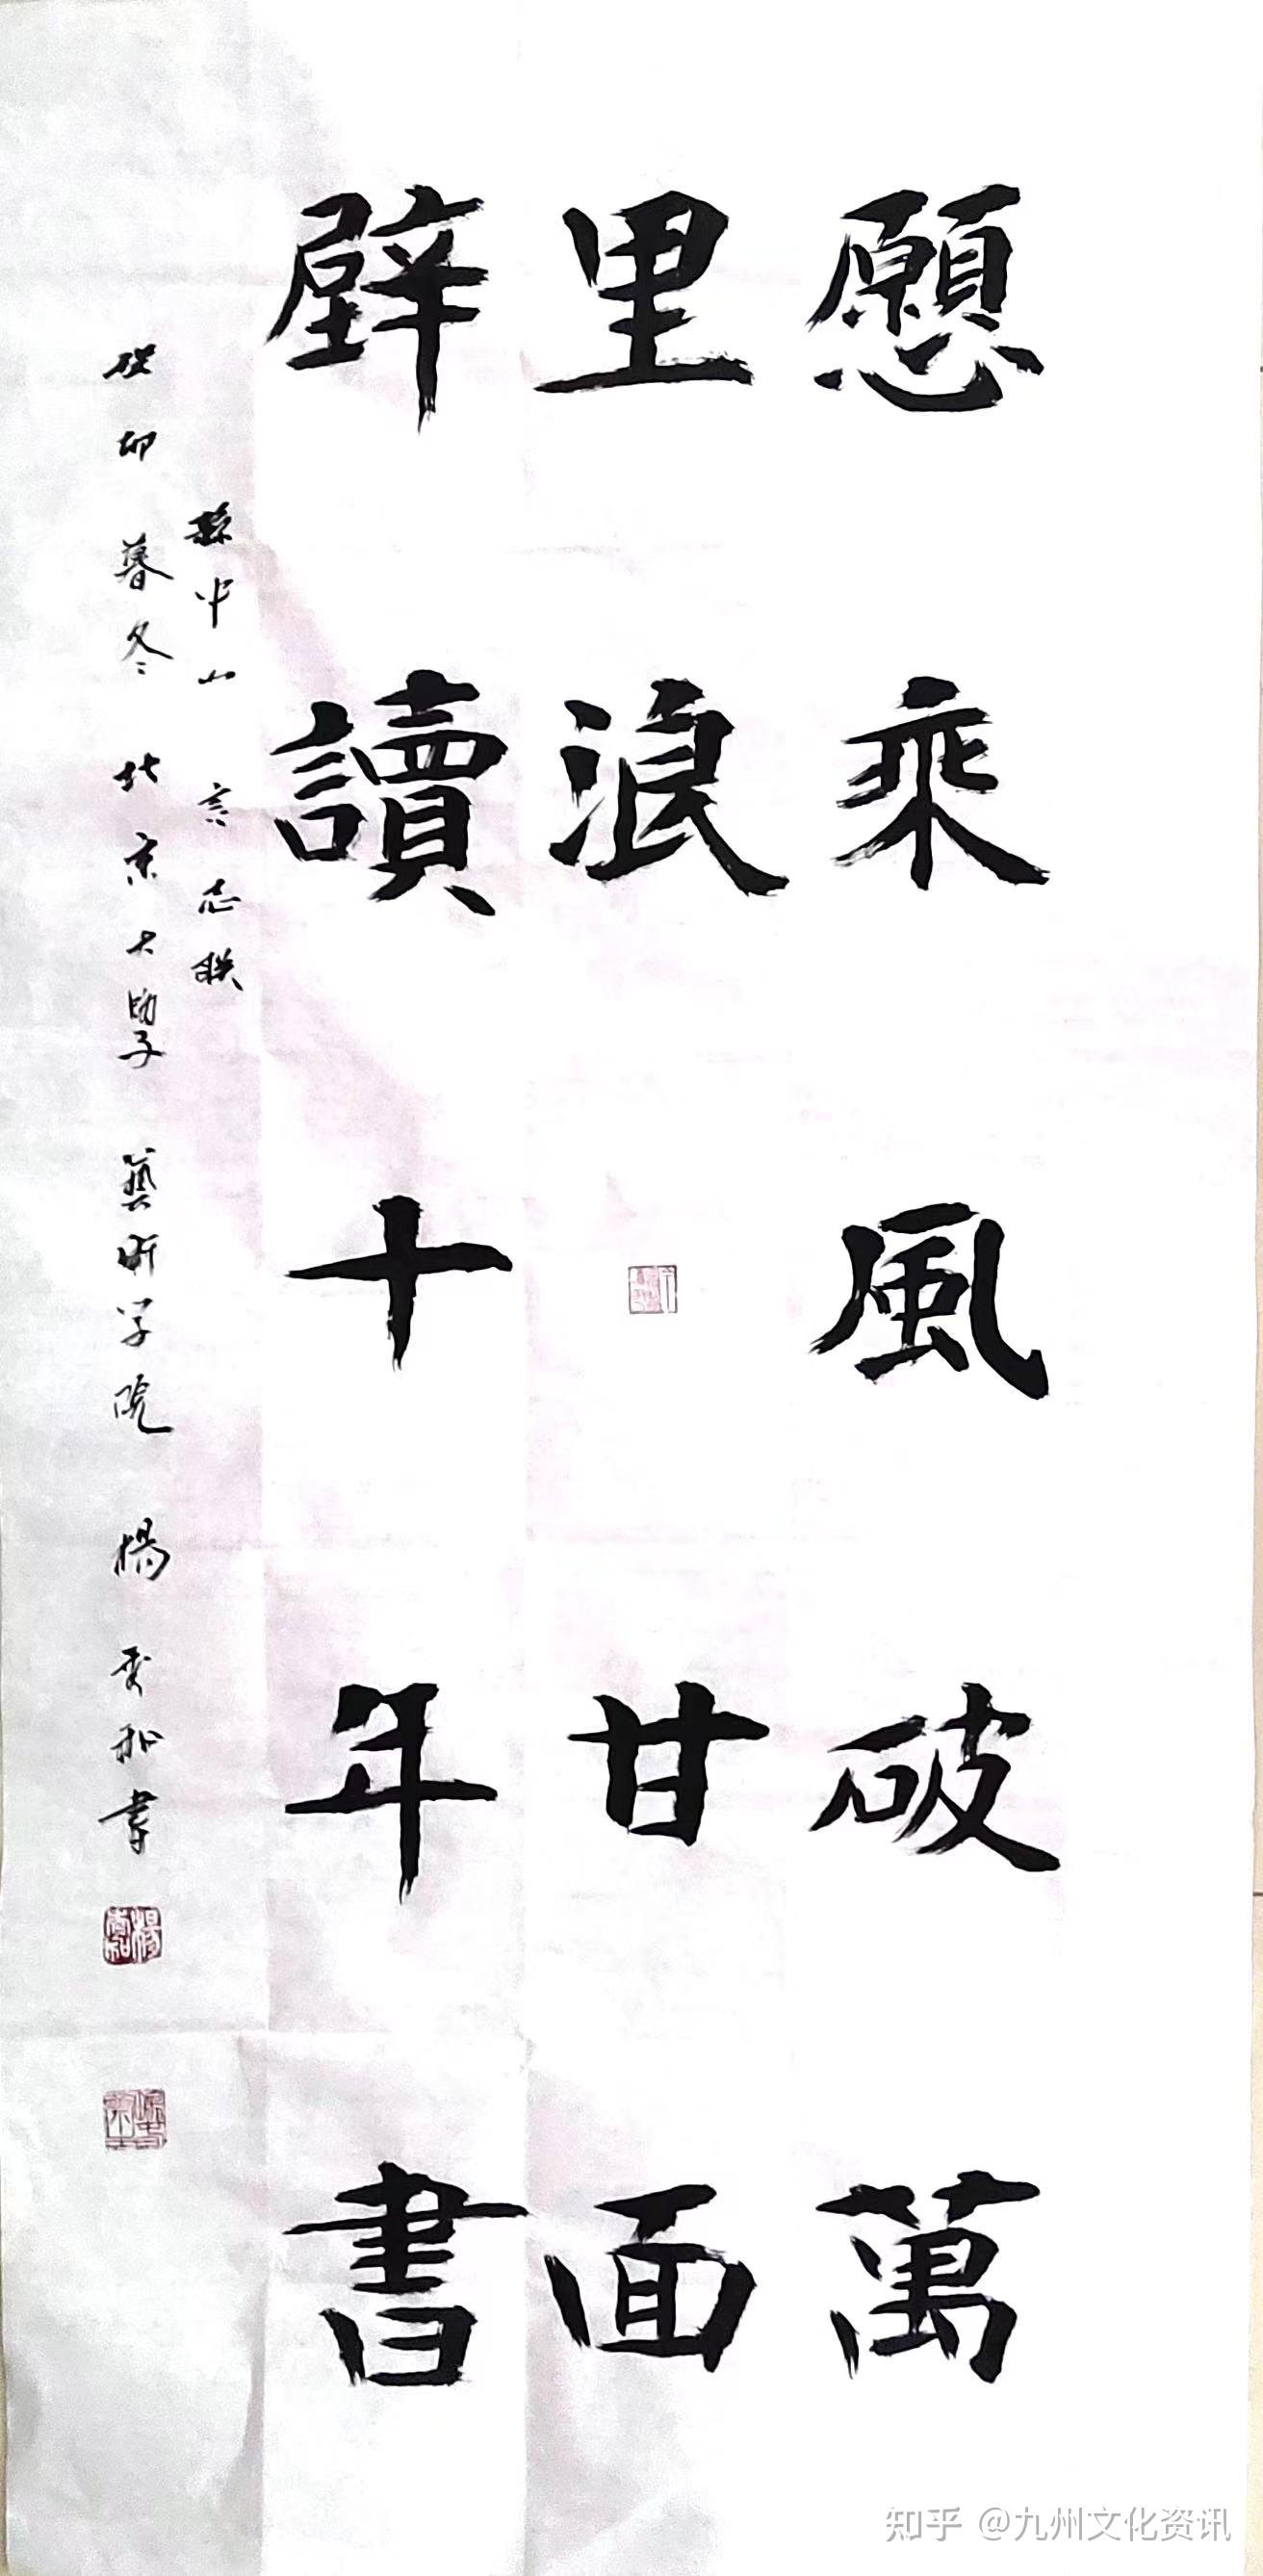 願乘風破萬
里浪甘面
壁讀十年書
孫中山言志联
癸卯暮冬北京大學藝術学院楊秀和書
知乎 @九州文化资讯